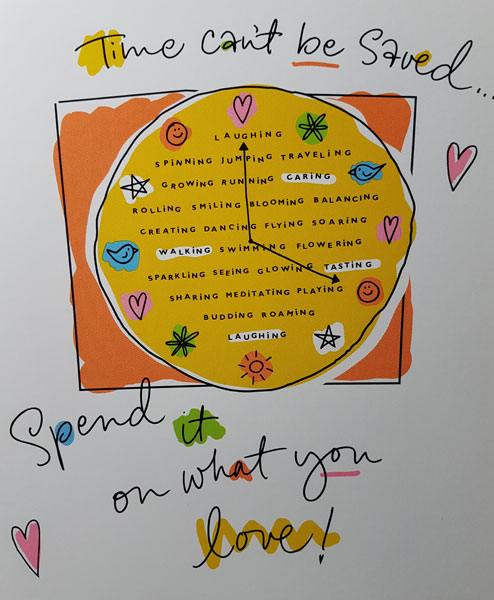 Time can't be Saved...
LAUGHING
SPINNING JUMPING TRAVELING
GROWING RUNNING CARING
ROLLING SMILING BLOOMING BALANCING
CREATING DANCING FLYING SOARING
WALKING SWIMMING FLOWERING
SPARKLING SEEING GLOWING TASTING
SHARING MEDITATING PLAYING
BUDDING ROAMING
LAUGHING
Spend it
on what you
love!